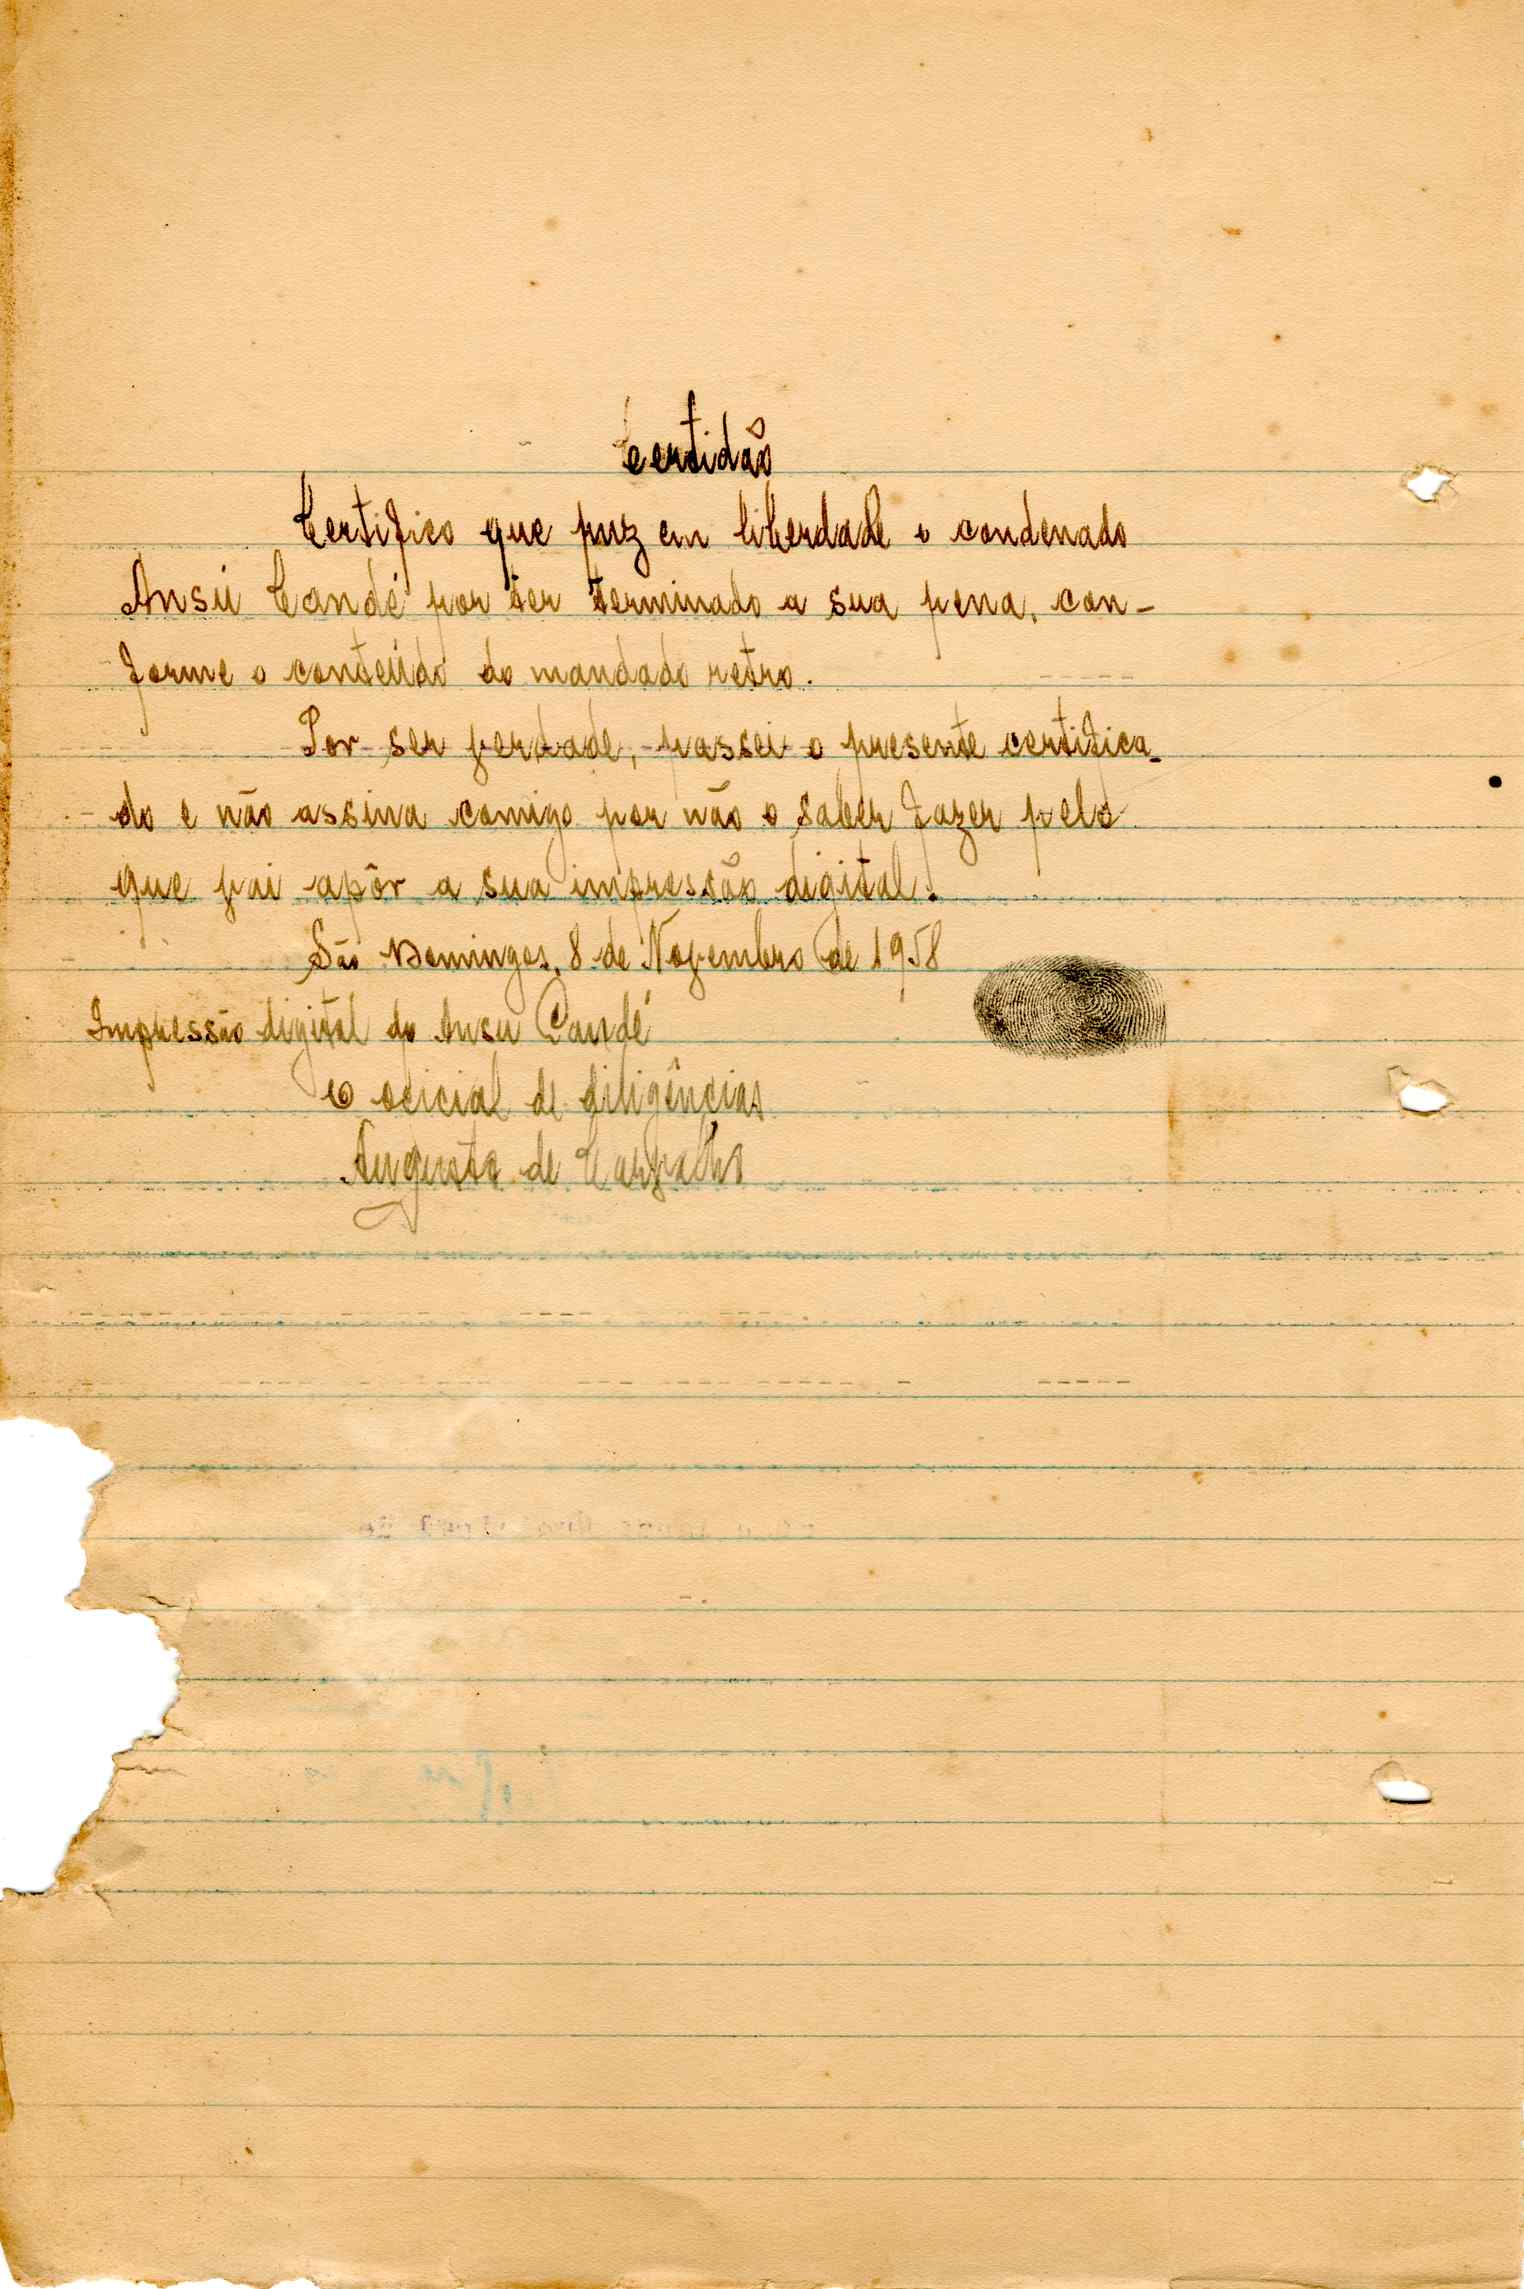 Certidão
Certifico que puz em liberdade o condenado
Ansú Candé por ter terminado a sua pena, con-
forme o conteúdo do mandado retro.
Por ser verdade, passei o presente certifica-
do e não assina comigo por não o saber fazer pelo
que vai apôr a sua impressão digital.
São Domingos, 8 de Novembro de 1958
Impressão digital do Ansu Candé
O oficial de diligências
Augusto de Carvalho